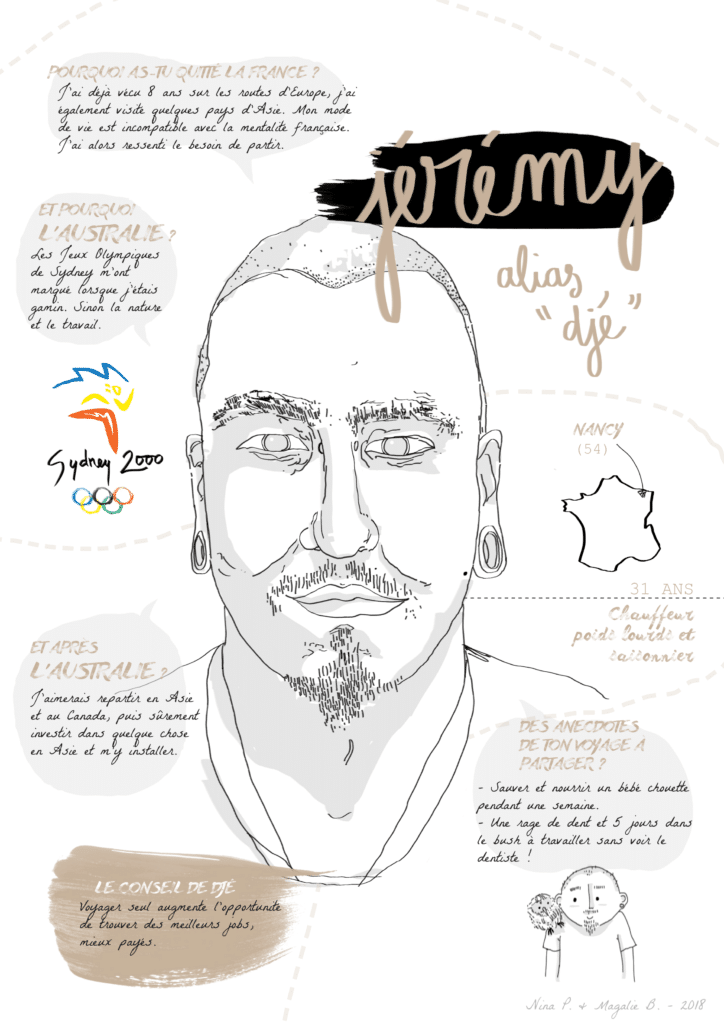 POURQUOI AS-TU QUITTÉ LA FRANCE ?
J'ai déjà vécu 8 ans sur les routes d'Europe, j'ai
également visité quelques pays d'Asie. Mon mode
de vie est incompatible avec la mentalité française.
J'ai alors ressenti le besoin de partir.
jérémy
alias
"djé"
ET POURQUOI
L'AUSTRALIE ?
Les Jeux Olympiques
de Sydney m'ont
marqué lorsque j'étais
gamin. Sinon la nature
et le travail.
Sydney 2000
NANCY
(54)
31 ANS
Chauffeur
poids lourds et
saisonnier
ET APRÈS
L'AUSTRALIE ?
J'aimerais repartir en Asie
et au Canada, puis sûrement
investir dans quelque chose
en Asie et m'y installer.
DES ANECDOTES
DE TON VOYAGE À
PARTAGER ?
- Sauver et nourrir un bébé chouette
pendant une semaine.
- Une rage de dent et 5 jours dans
le bush à travailler sans voir le
dentiste !
LE CONSEIL DE DJÉ
Voyager seul augmente l'opportunité
de trouver des meilleurs jobs,
mieux payés.
Nina P. & Magalie B. - 2018